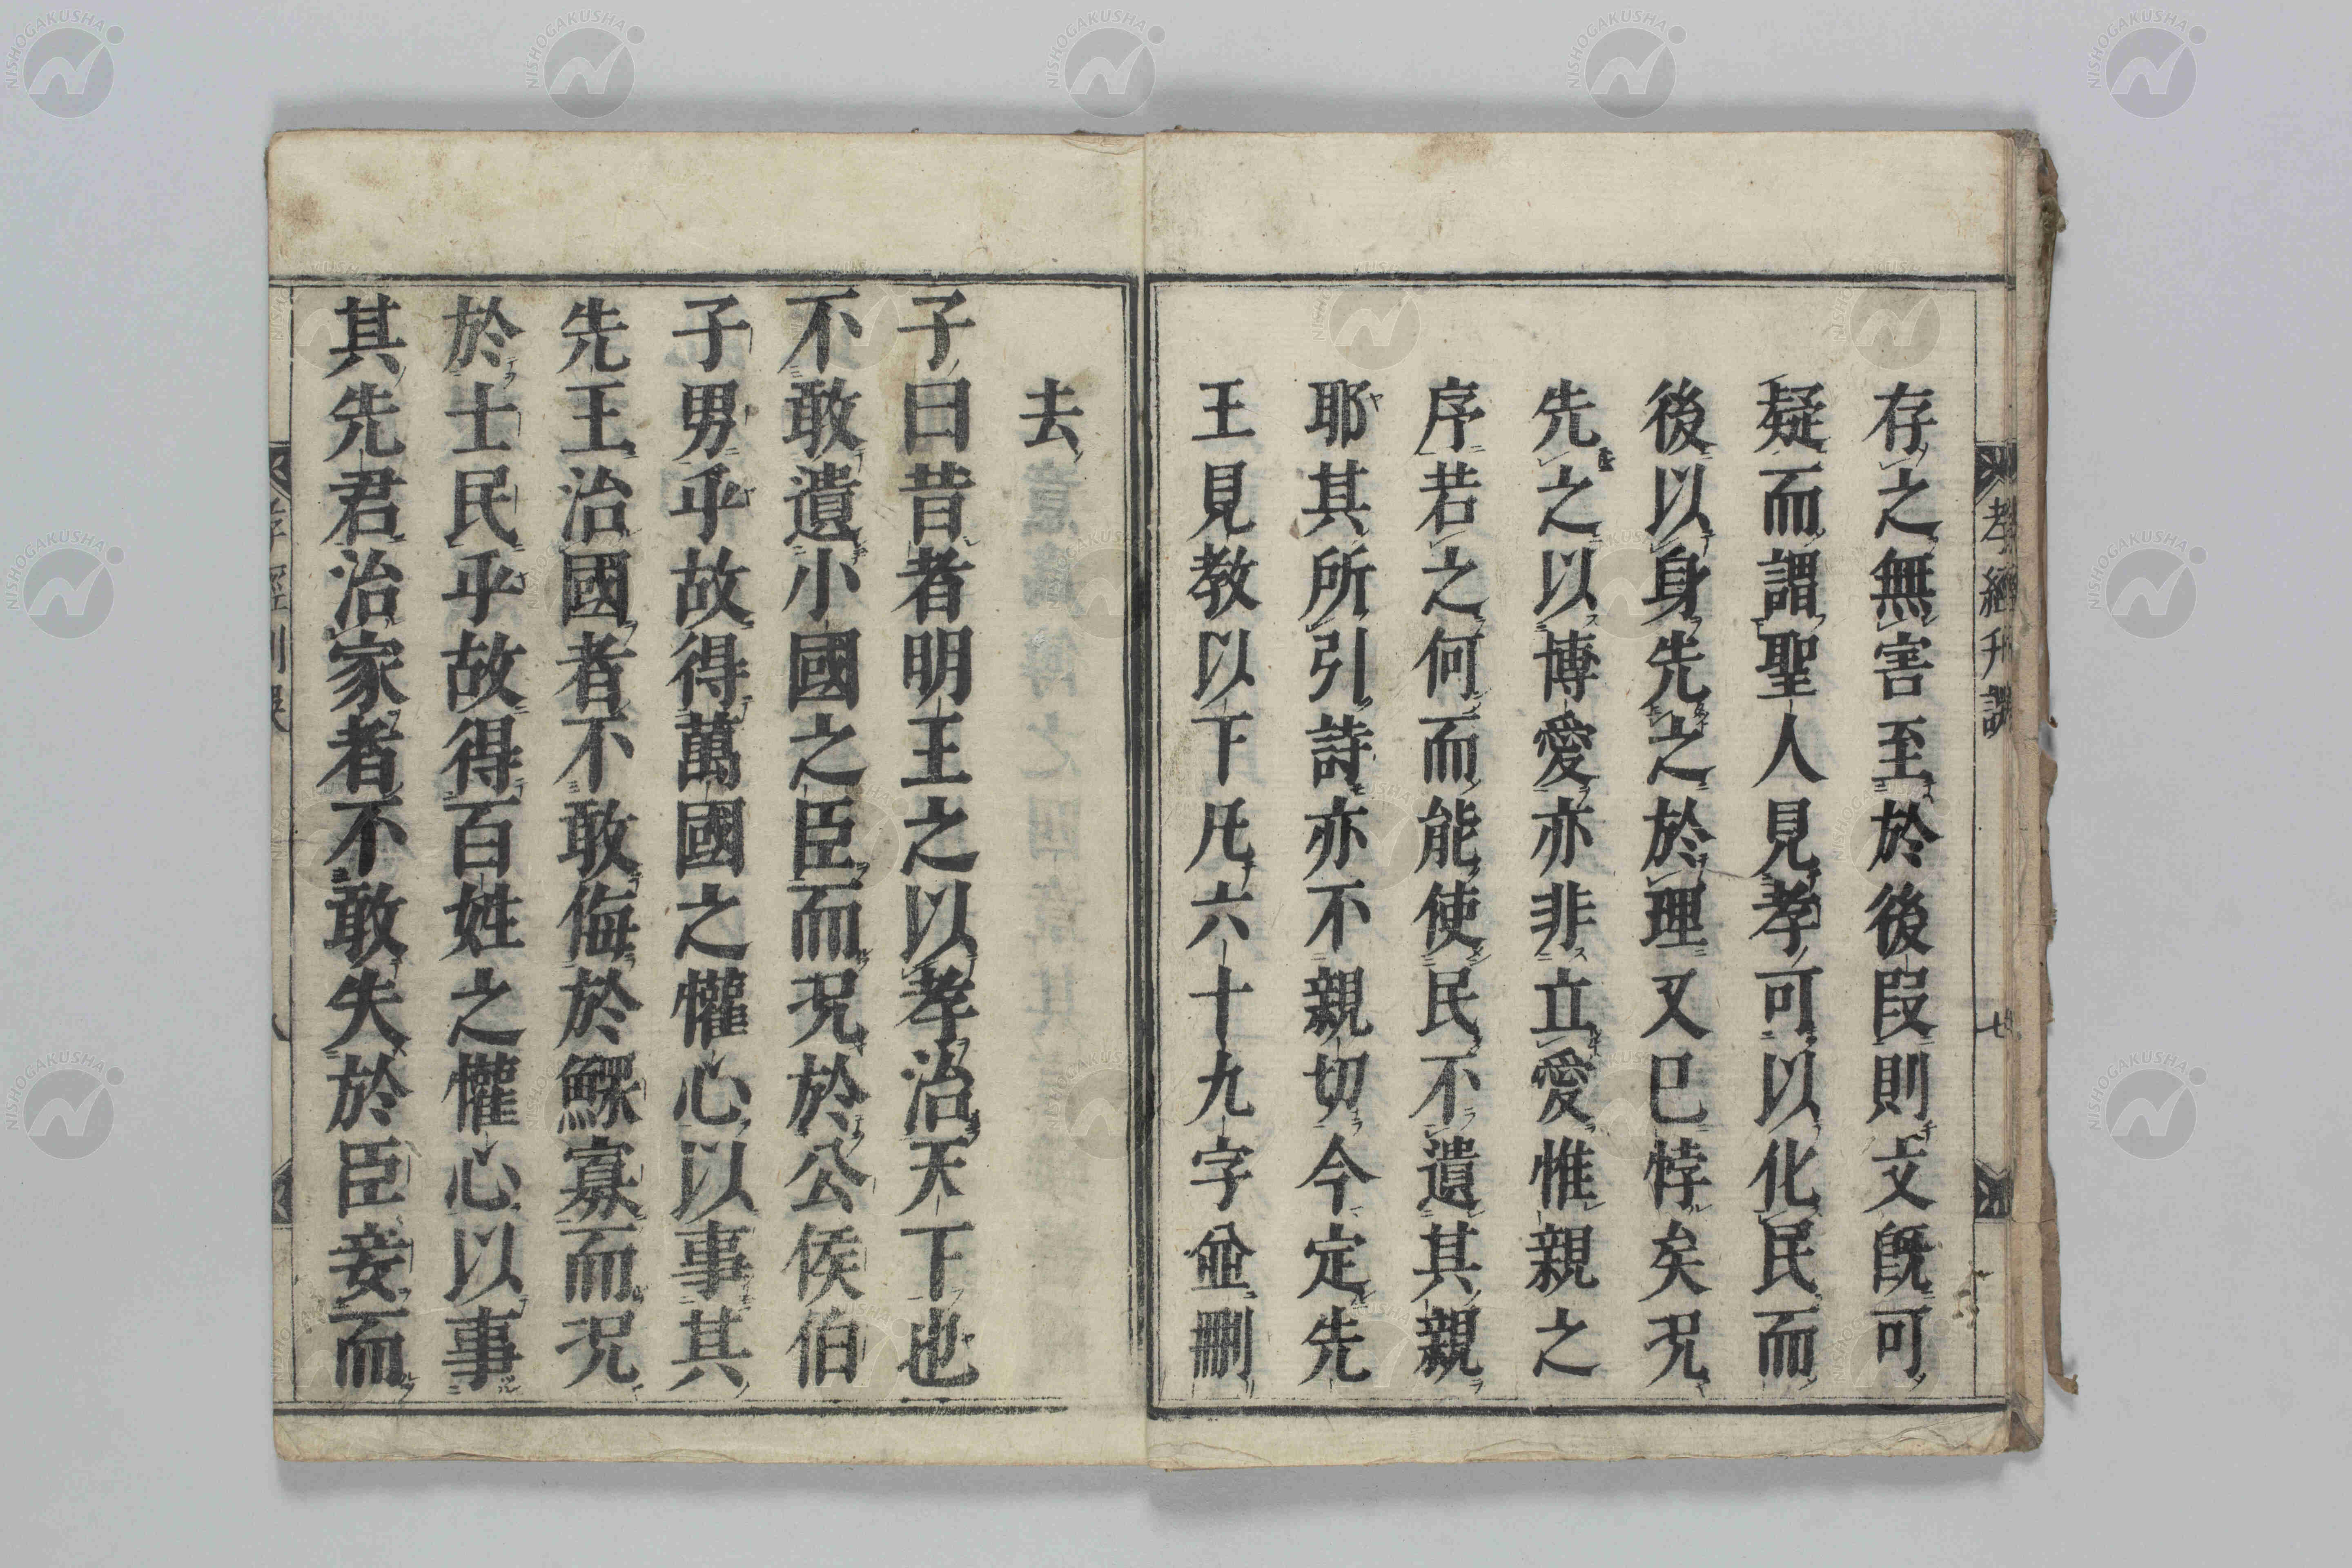 存之無害至於後段則文既可
疑而謂聖人見孝可以化民而
後以身先之於理又已悖矣况
先之以博愛亦非立愛惟親之
序若之何而能使民不遺其親
耶其所引詩亦不親切今定先
王見教以下凡六十九字並刪
去
子曰昔者明王之以孝治天下也
不敢遺小國之臣而况於公侯伯
子男乎故得萬國之懽心以事其
先王治國者不敢侮於鰥寡而况
於士民乎故得百姓之懽心以事
其先君治家者不敢失於臣妾而
孝經刊誤
七
NISHOGAKUSHA